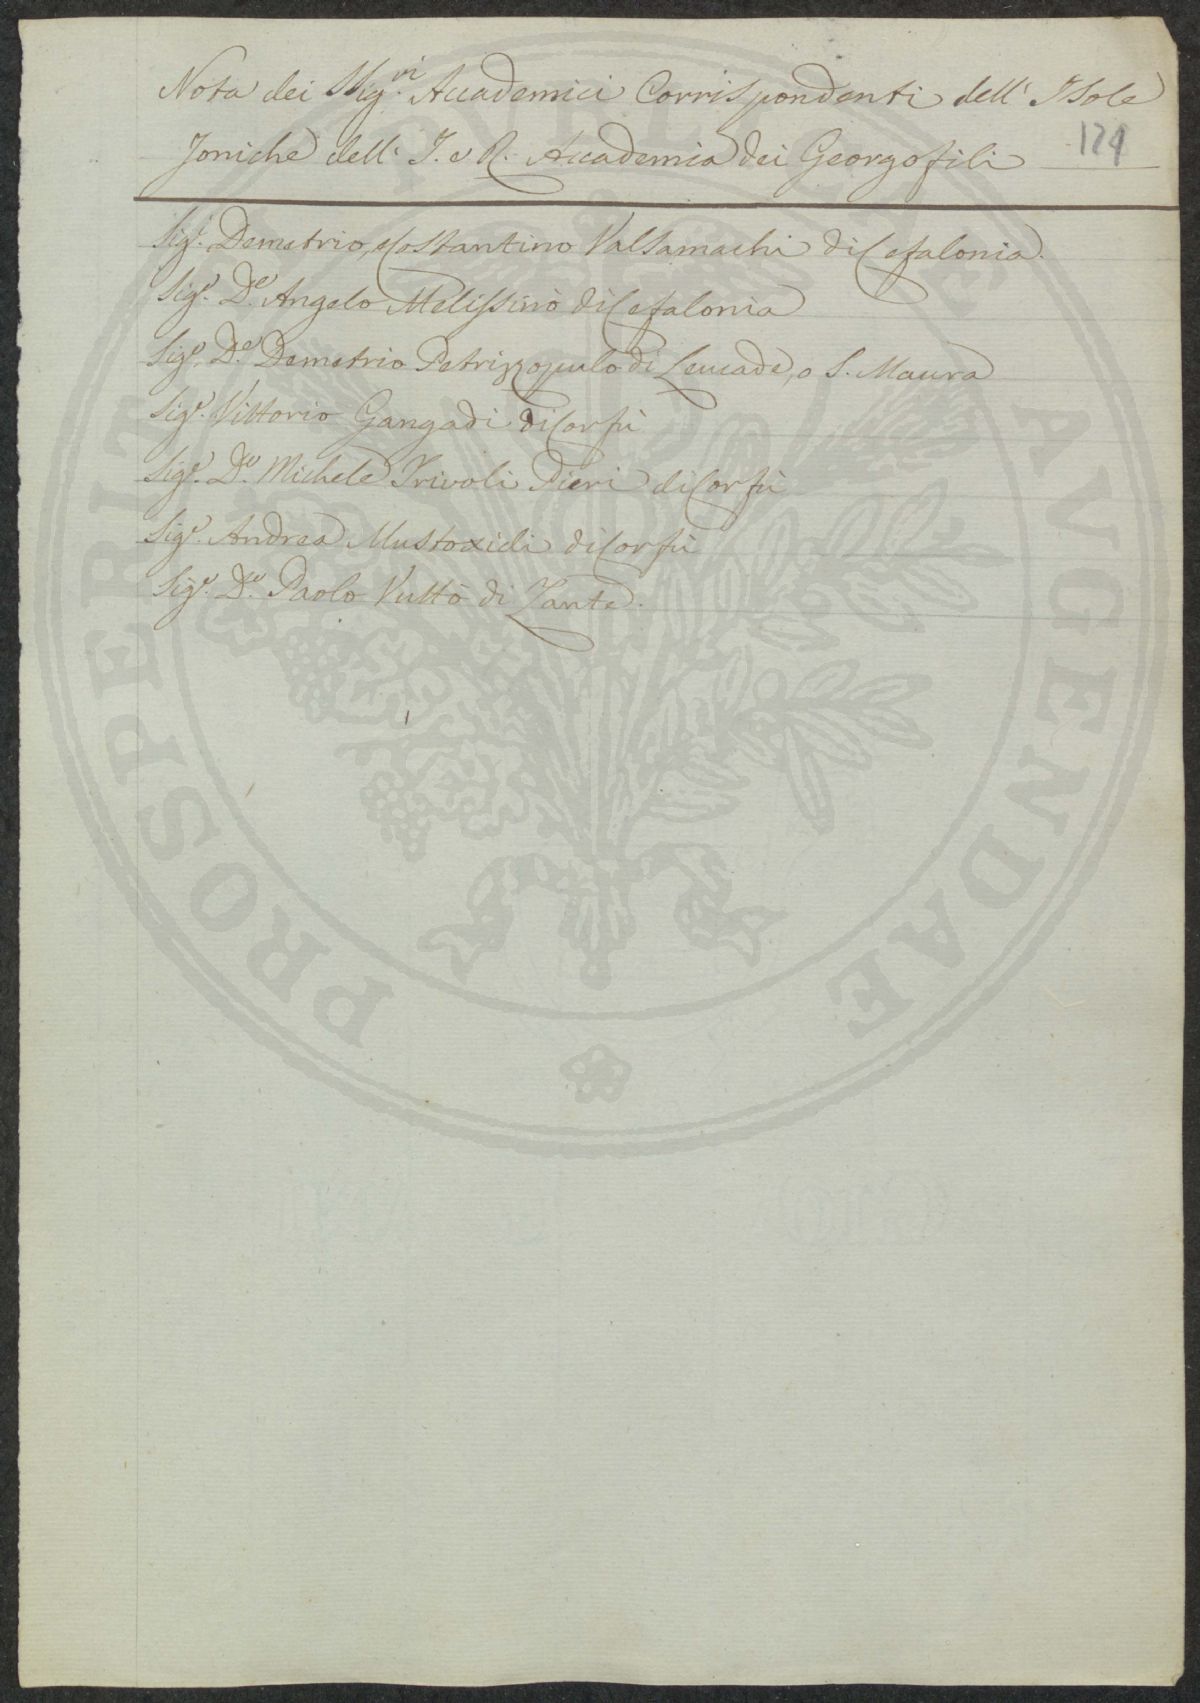 Nota dei SSig.ri Accademici Corrispondenti dell' Isole
Joniche dell' I. e R. Accademia dei Georgofili
124
Sig.r Demetrio, Costantino Valsamachi di Cefalonia.
Sig.r D.e Angelo Melissinò di Cefalonia
Sig.r D.e Demetrio Petrizzopulo di Leucade, o S. Maura
Sig.r Vittorio Gangadi di Corfù
Sig.r D.e Michele Trivoli Pieri di Corfù
Sig.r Andrea Mustoxidi di Corfù
Sig.r D.e Paolo Vuttò di Zante.
PROSPERITATI PVBLICAE AVGENDAE